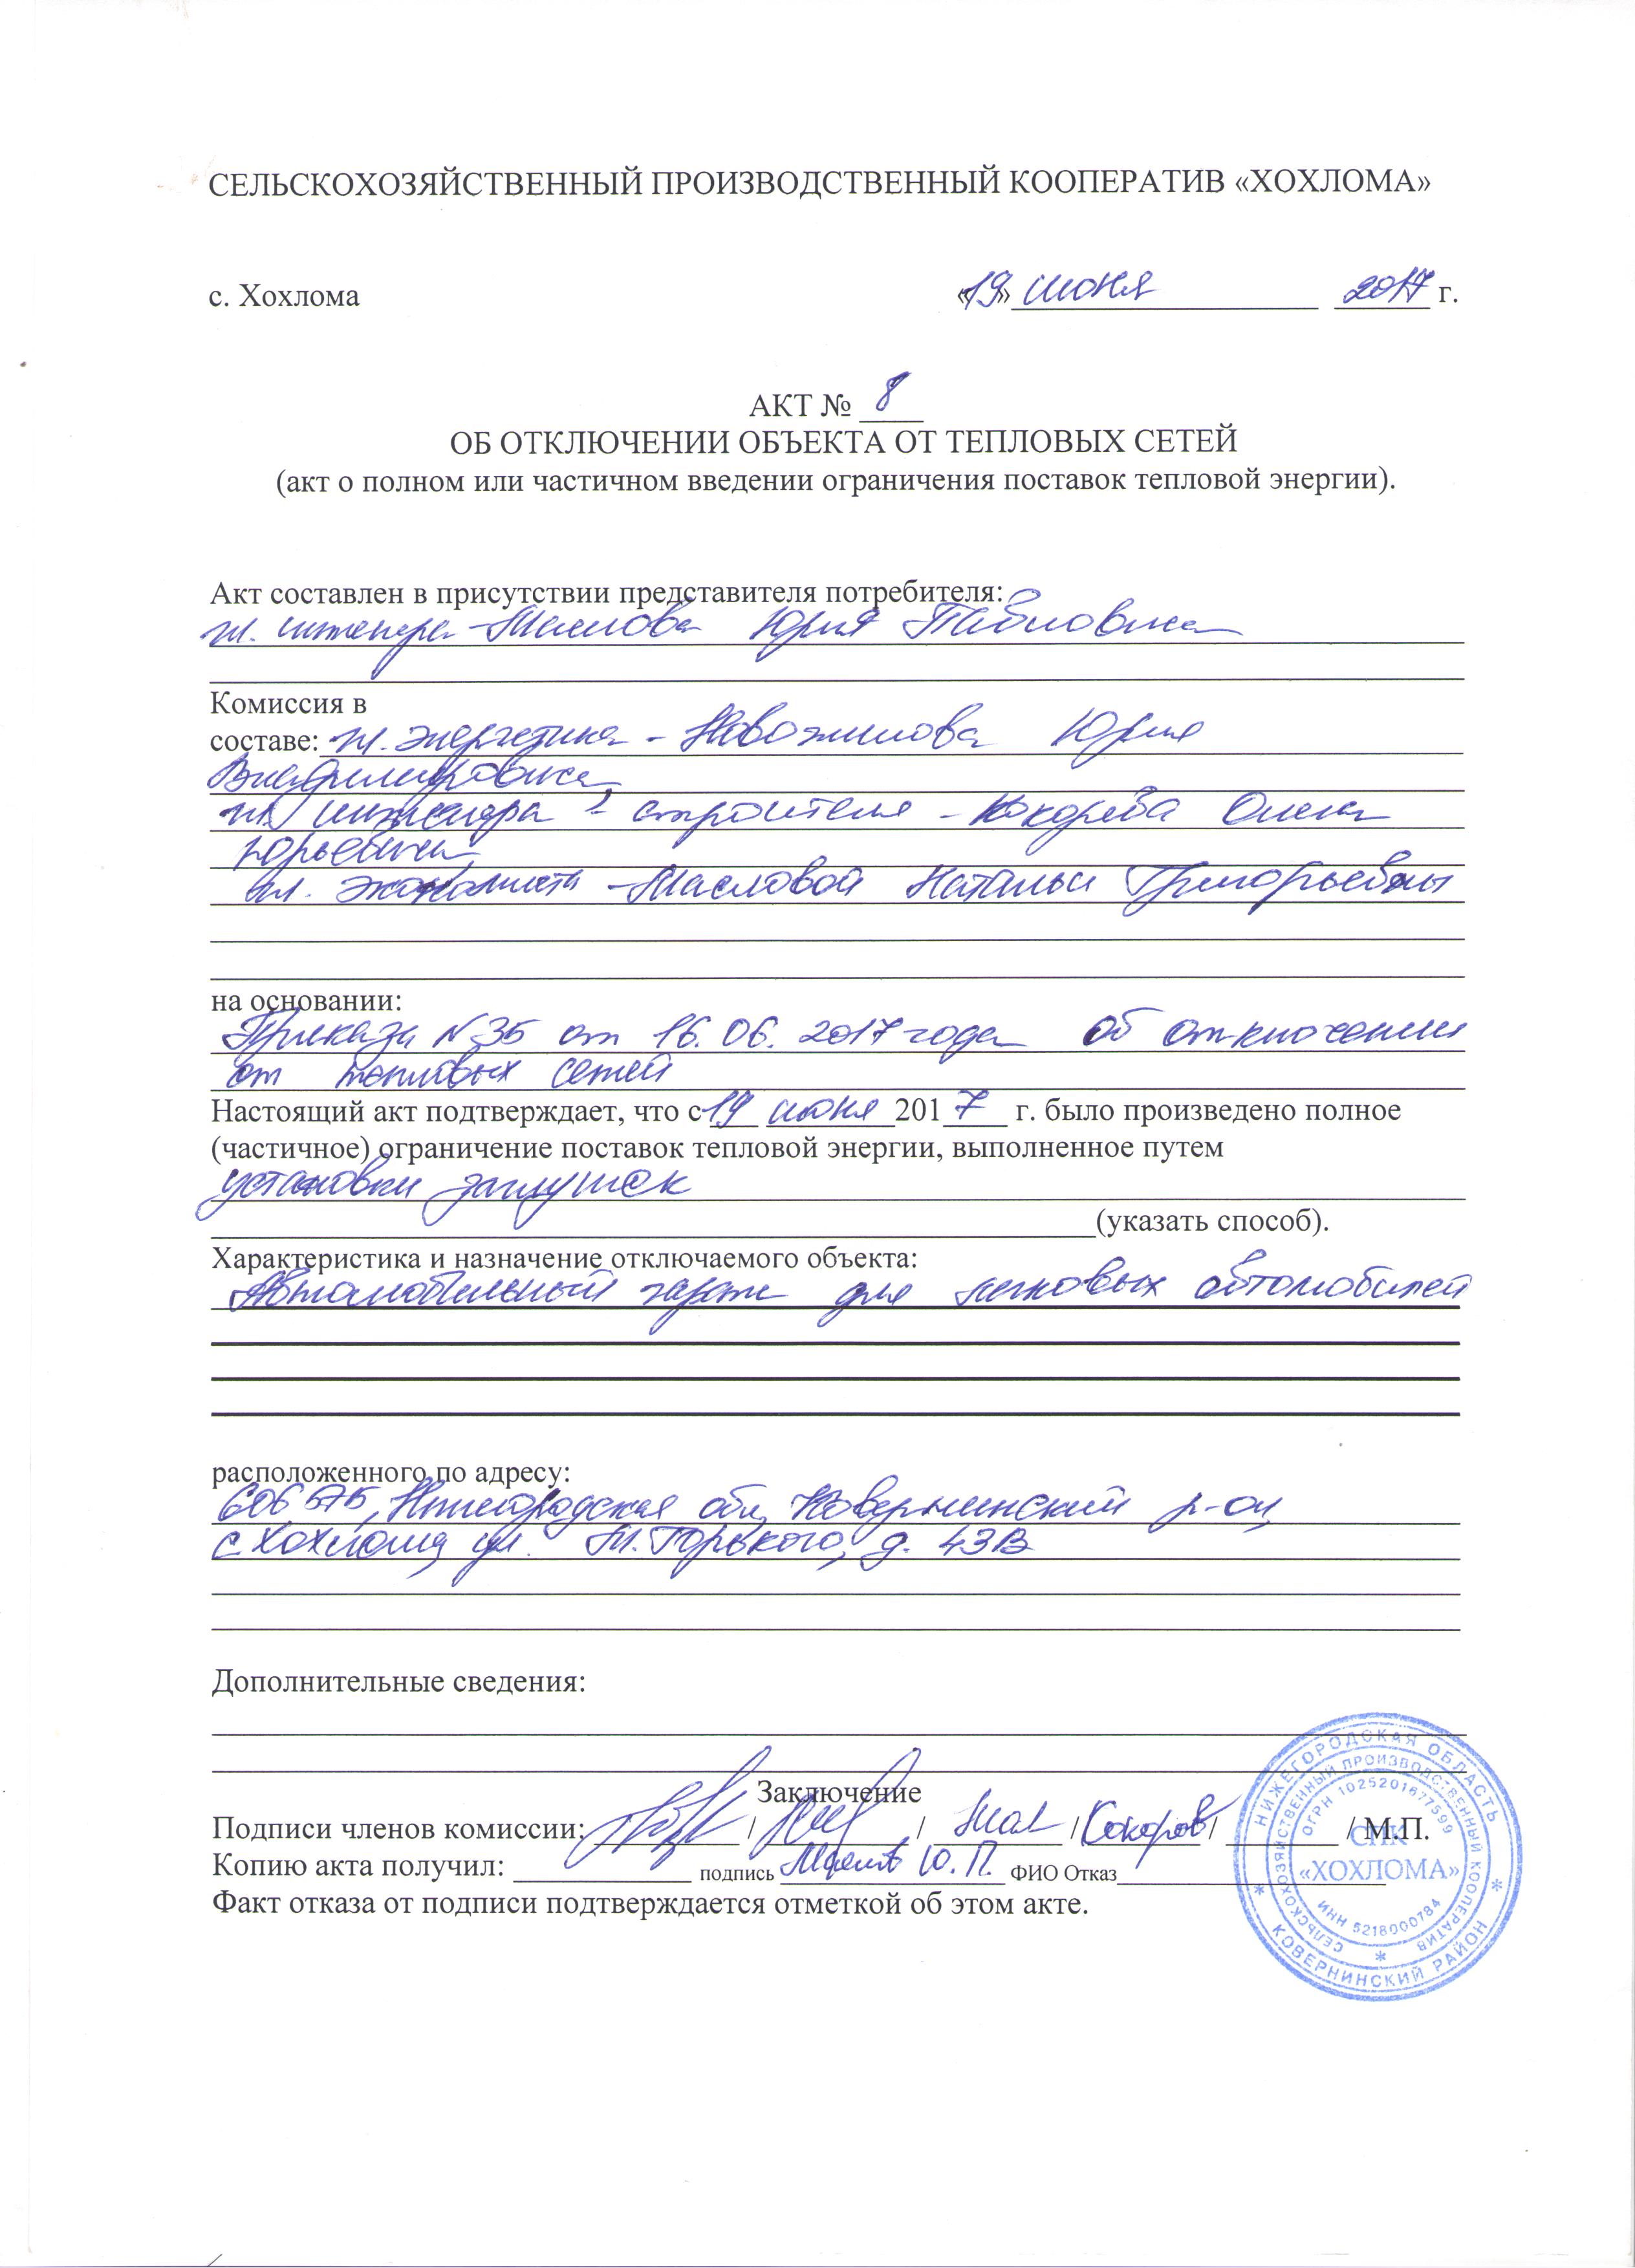 СЕЛЬСКОХОЗЯЙСТВЕННЫЙ ПРОИЗВОДСТВЕННЫЙ КООПЕРАТИВ «ХОХЛОМА»
с. Хохлома «19» июня 2017 г.
АКТ № 8
ОБ ОТКЛЮЧЕНИИ ОБЪЕКТА ОТ ТЕПЛОВЫХ СЕТЕЙ
(акт о полном или частичном введении ограничения поставок тепловой энергии).
Акт составлен в присутствии представителя потребителя:
гл. инженера - Маслова Юрия Павловича
Комиссия в
составе: гл. энергетика - Новожилова Юрия
Владимировича,
гл. инженера - строителя - Кокорева Олега
Юрьевича,
гл. экономиста - Масловой Натальи Григорьевны
на основании:
Приказа № 35 от 16.06.2017 года об отключении
от тепловых сетей
Настоящий акт подтверждает, что с 19 июня 2017 г. было произведено полное
(частичное) ограничение поставок тепловой энергии, выполненное путем
установки заглушек
(указать способ).
Характеристика и назначение отключаемого объекта:
Автомобильный гараж для легковых автомобилей
расположенного по адресу:
606575, Нижегородская обл, Ковернинский р-он,
с Хохлома, ул. М. Горького, д. 43В
Дополнительные сведения:
Заключение
Подписи членов комиссии: / / / / / М.П.
Копию акта получил: подпись Ю.П. ФИО Отказ
Факт отказа от подписи подтверждается отметкой об этом акте.
НИЖЕГОРОДСКАЯ ОБЛАСТЬ
КОВЕРНИНСКИЙ РАЙОН
СЕЛЬСКОХОЗЯЙСТВЕННЫЙ ПРОИЗВОДСТВЕННЫЙ КООПЕРАТИВ
ОГРН 1025201677599
СПК
«ХОХЛОМА»
ИНН 5218000784